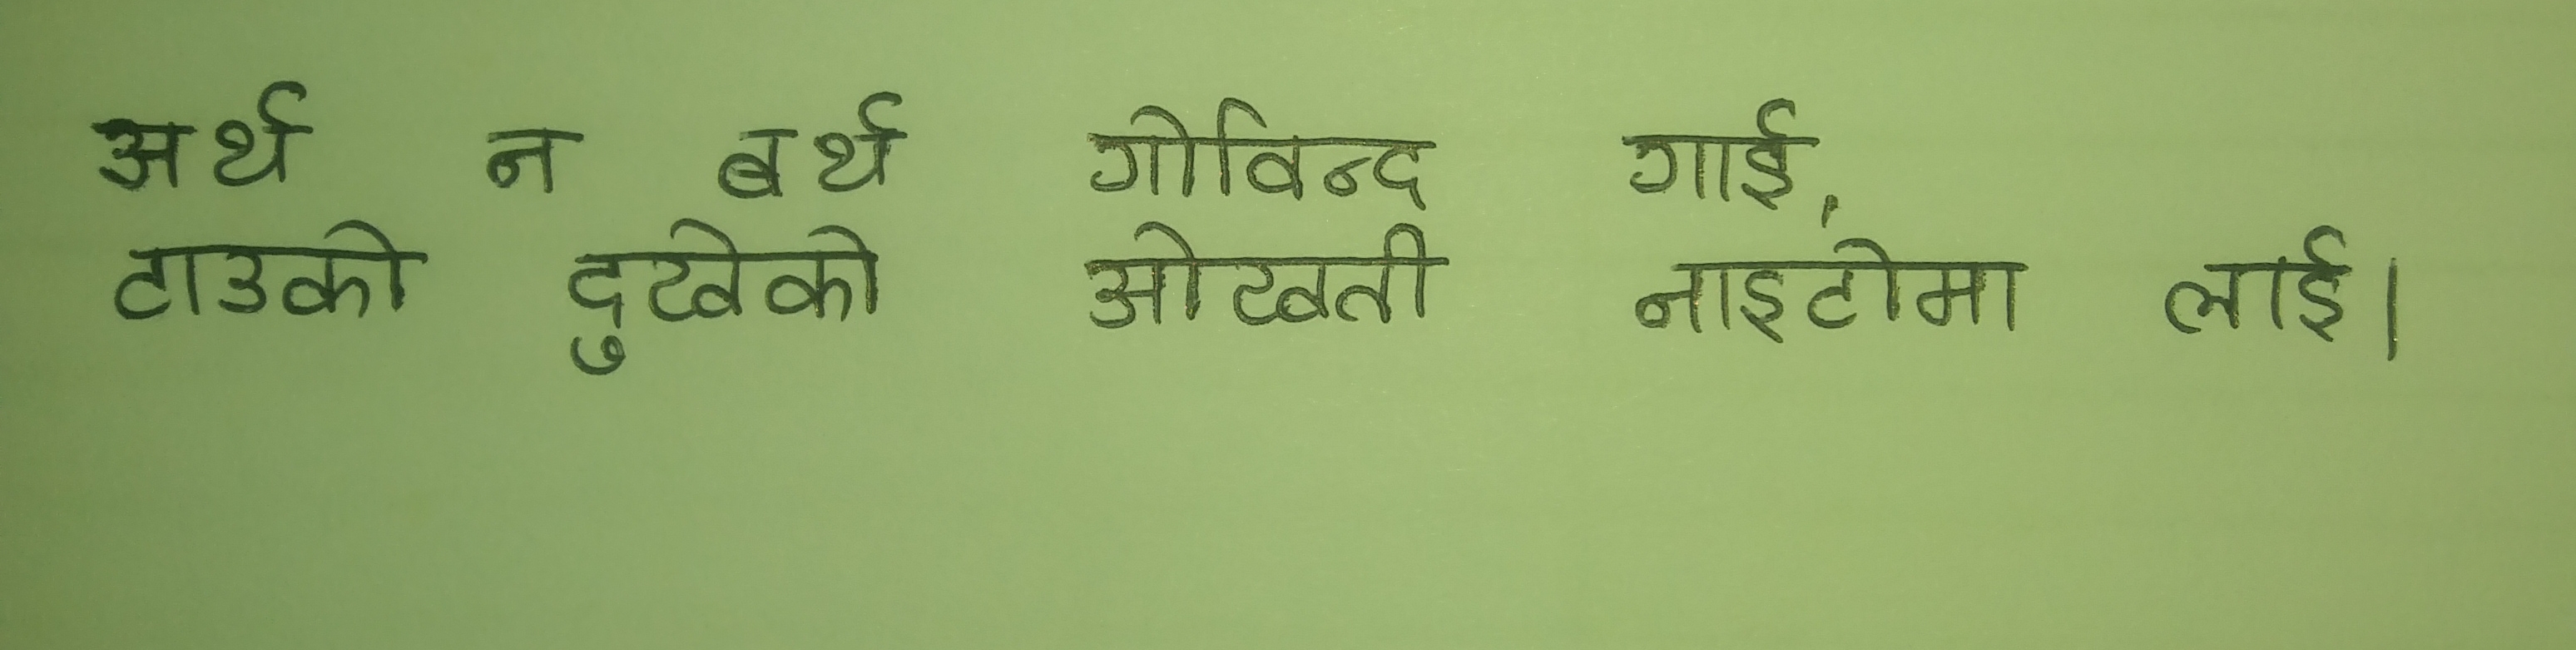 अर्थ न बर्थ गोविन्द गाई,
टाउको दुखेको ओखती नाइटोमा लाई।